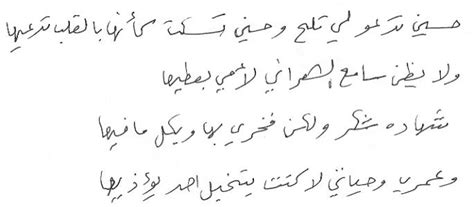 حسين تدعو لي تلح وحسين تسكت كأنها بالقلب تدعيها
ولا يظن سامع الشعراني لا يعطيها
شهاده شكر ولكن فخري بها وبكل ما فيها
وعمري وحياتي لا كنت يتخيل احد يؤذيها